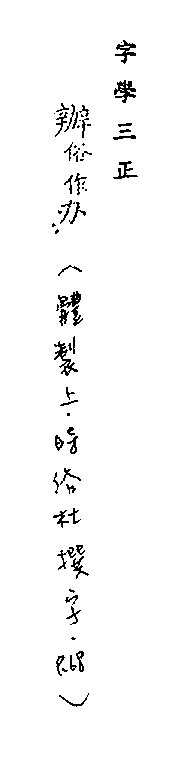 字學三正
辦俗作办.(體製上.時俗杜撰字.p.68)